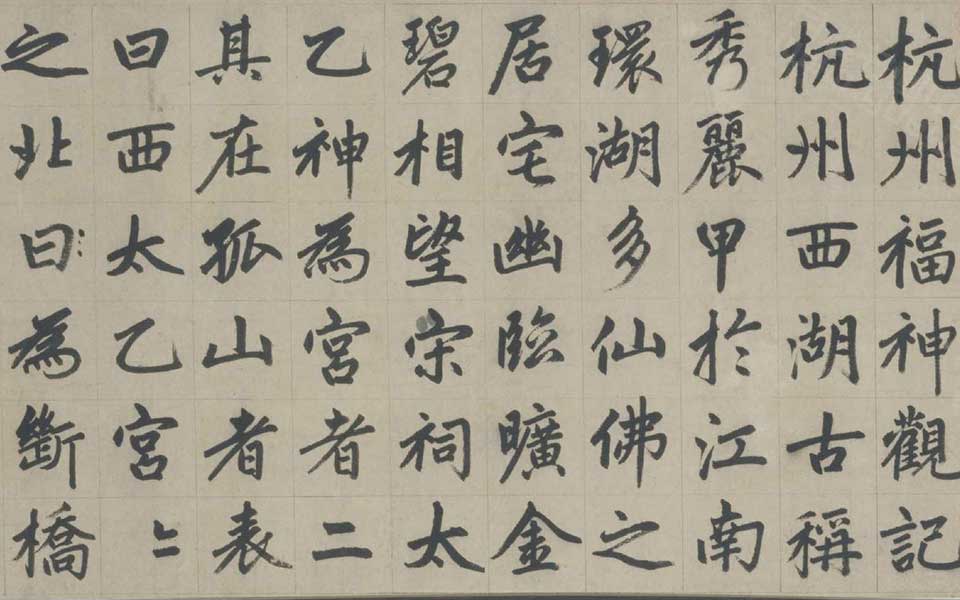 杭州福神觀記
杭州西湖古稱
秀麗甲於江南
環湖多仙佛之
居宅幽臨曠金
碧相望宋祠太
乙神為宮者二
其在孤山者表
曰西太乙宮〻
之北曰為斷橋